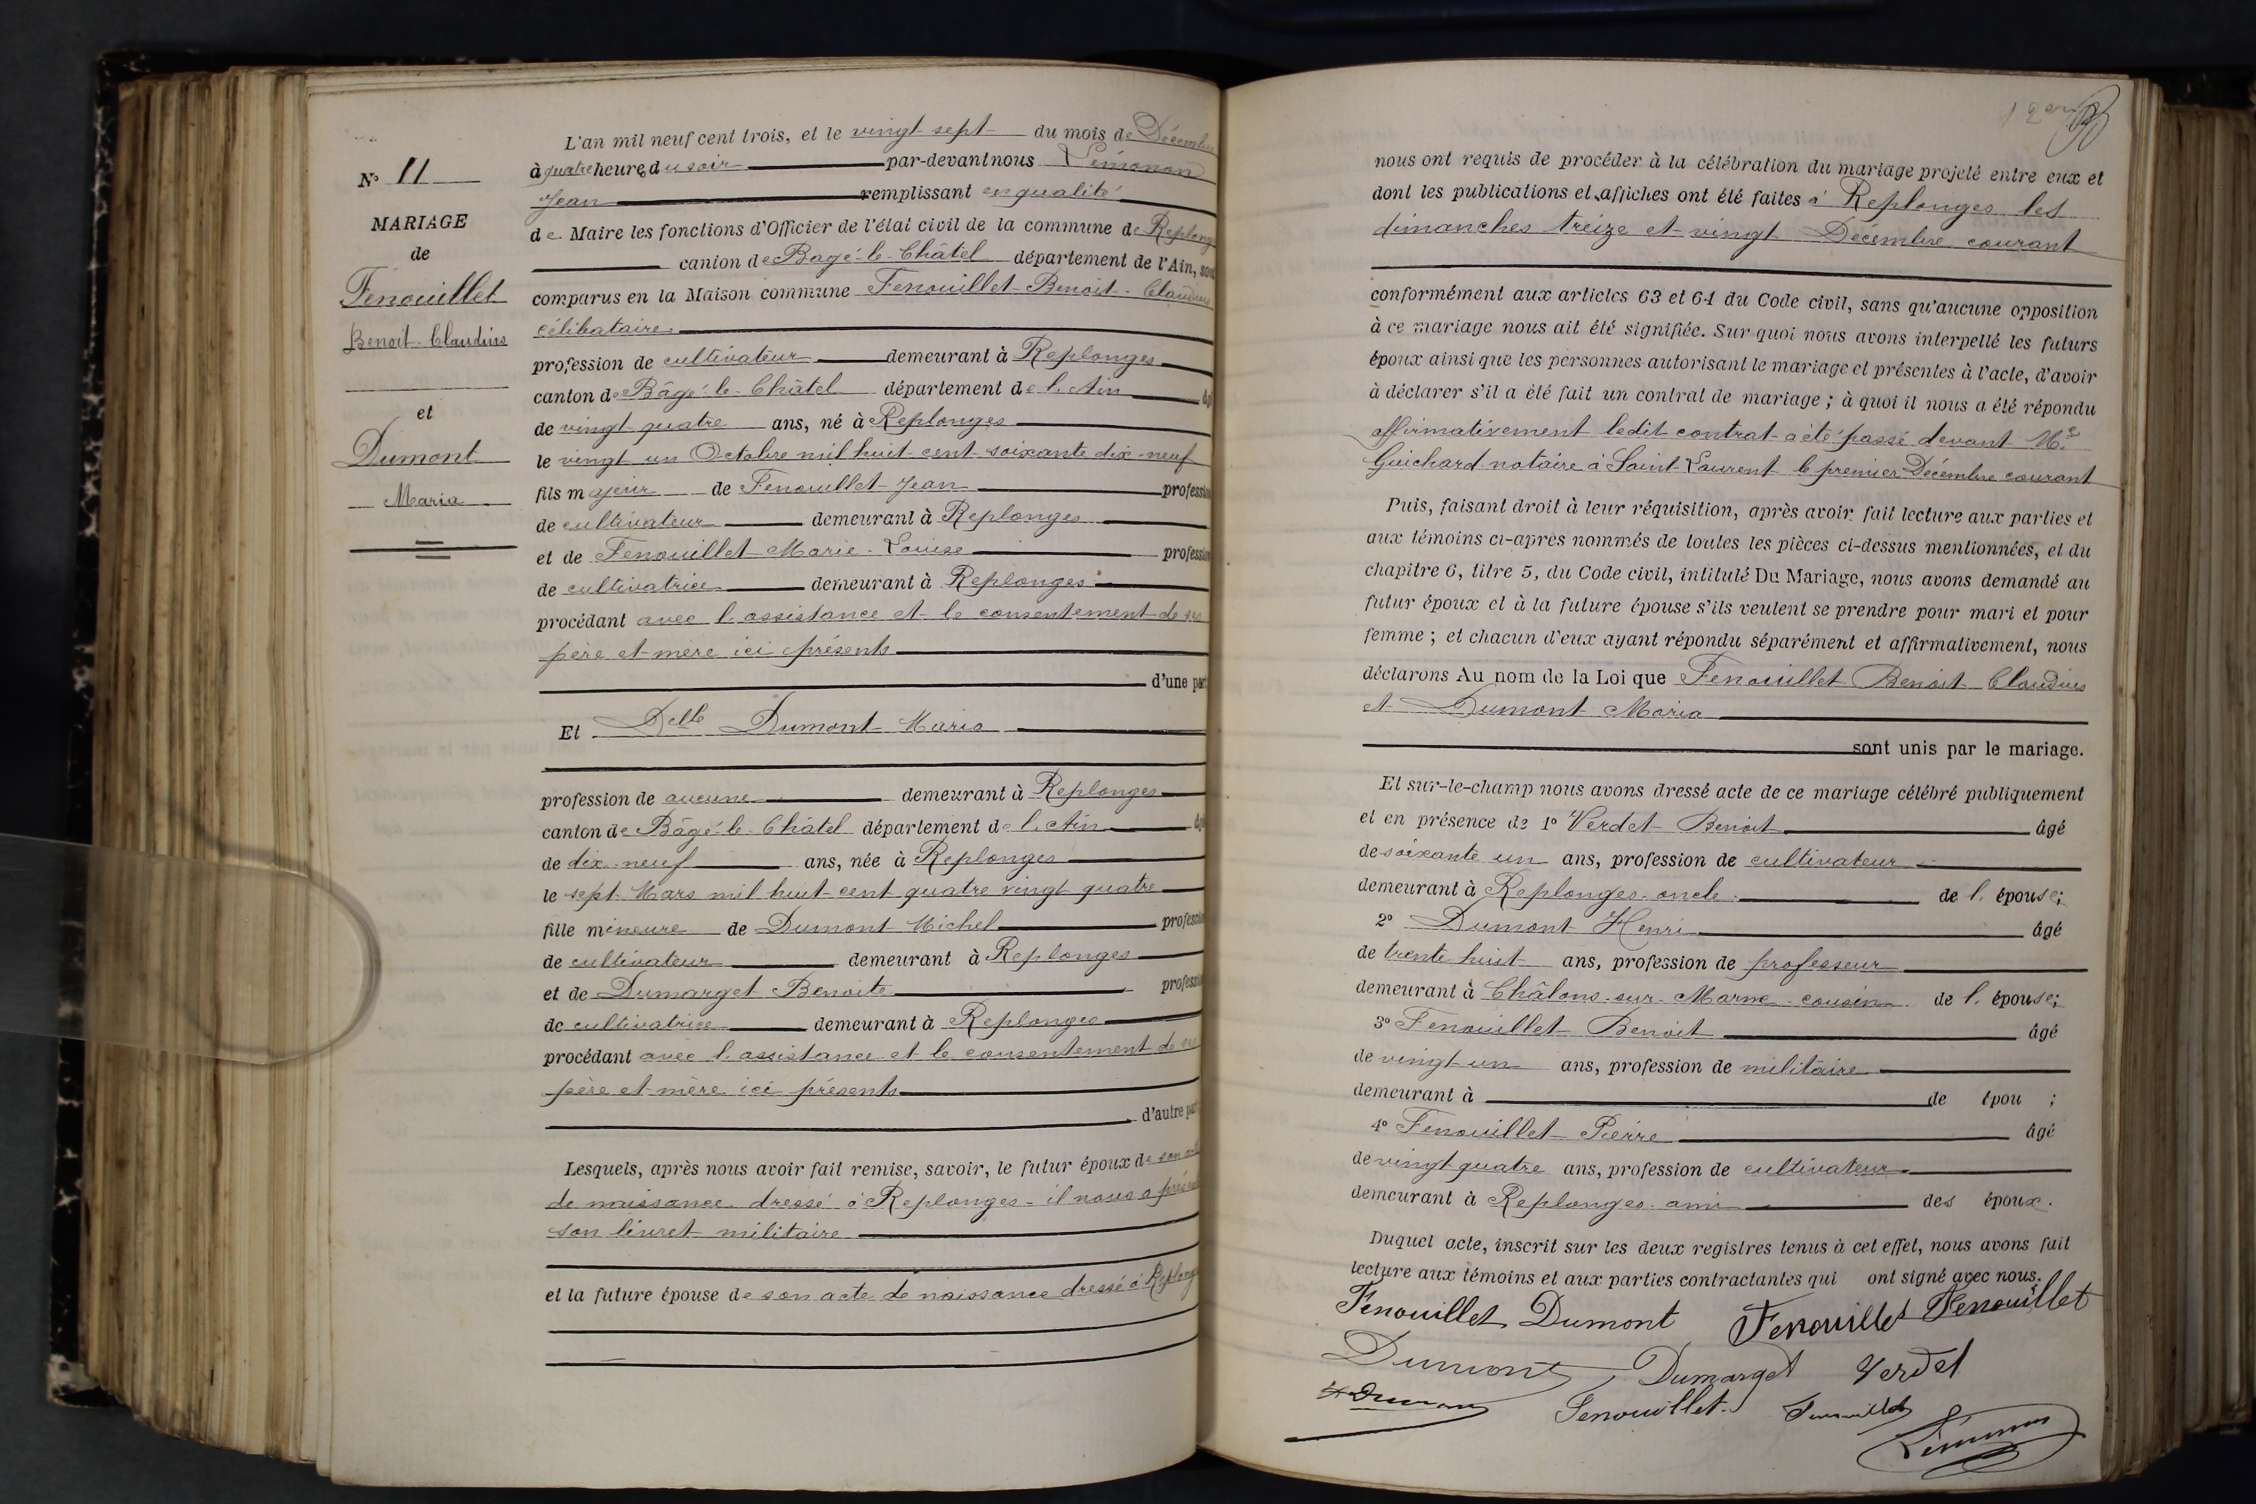 N° 11
MARIAGE
de
Fenouillet
Benoit-Claudius
et
Dumont
Maria
L'an mil neuf cent trois, et le vingt sept du mois de Décembre
à quatre heures du soir par-devant nous Lémonon
Jean remplissant en qualité
de Maire les fonctions d'Officier de l'état civil de la commune de Replong
canton de Bagé-le-Châtel département de l'Ain, sont
comparus en la Maison commune Fenouillet Benoit-Claudius
célibataire
profession de cultivateur demeurant à Replonges
canton de Bâgé-le-Châtel département de l'Ain
de vingt quatre ans, né à Replonges
le vingt un Octobre mil huit cent soixante dix-neuf
fils majeur de Fenouillet Jean profession
de cultivateur demeurant à Replonges
et de Fenouillet Marie-Louise profession
de cultivatrice demeurant à Replonges
procédant avec l'assistance et le consentement de ses
père et mère ici présents
d'une part
Et Delle Dumont Maria
profession de aucune demeurant à Replonges
canton de Bâgé-le-Châtel département de l'Ain
de dix-neuf ans, née à Replonges
le sept Mars mil huit cent quatre vingt quatre
fille mineure de Dumont Michel profession
de cultivateur demeurant à Replonges
et de Dumarget Benoite profession
de cultivatrice demeurant à Replonges
procédant avec l'assistance et le consentement de ses
père et mère ici présents
d'autre part
Lesquels, après nous avoir fait remise, savoir, le futur époux de son acte
de naissance dressé à Replonges - il nous a présenté
son livret militaire
et la future épouse de son acte de naissance dressé à Replong
nous ont requis de procéder à la célébration du mariage projeté entre eux et
dont les publications et affiches ont été faites à Replonges les
dimanches treize et vingt Décembre courant
conformément aux articles 63 et 64 du Code civil, sans qu'aucune opposition
à ce mariage nous ait été signifiée. Sur quoi nous avons interpellé les futurs
époux ainsi que les personnes autorisant le mariage et présentes à l'acte, d'avoir
à déclarer s'il a été fait un contrat de mariage ; à quoi il nous a été répondu
affirmativement ledit contrat a été passé devant Me
Guichard notaire à Saint-Laurent le premier Décembre courant
Puis, faisant droit à leur réquisition, après avoir fait lecture aux parties et
aux témoins ci-après nommés de toutes les pièces ci-dessus mentionnées, et du
chapitre 6, titre 5, du Code civil, intitulé Du Mariage, nous avons demandé au
futur époux et à la future épouse s'ils veulent se prendre pour mari et pour
femme ; et chacun d'eux ayant répondu séparément et affirmativement, nous
déclarons Au nom de la Loi que Fenouillet Benoit Claudius
et Dumont Maria
sont unis par le mariage.
Et sur-le-champ nous avons dressé acte de ce mariage célébré publiquement
et en présence de 1° Verdet Benoit âgé
de soixante un ans, profession de cultivateur
demeurant à Replonges oncle de l'épouse;
2° Dumont Henri âgé
de trente huit ans, profession de professeur
demeurant à Châlons-sur-Marne cousin de l'épouse;
3° Fenouillet Benoit âgé
de vingt un ans, profession de militaire
demeurant à de épou ;
4° Fenouillet Pierre âgé
de vingt quatre ans, profession de cultivateur
demeurant à Replonges ami des époux.
Duquel acte, inscrit sur les deux registres tenus à cet effet, nous avons fait
lecture aux témoins et aux parties contractantes qui ont signé avec nous.
Fenouillet Dumont Fenouillet Fenouillet
Dumont Dumarget Verdet
H Dumont Fenouillet Fenouillet
Lémonon